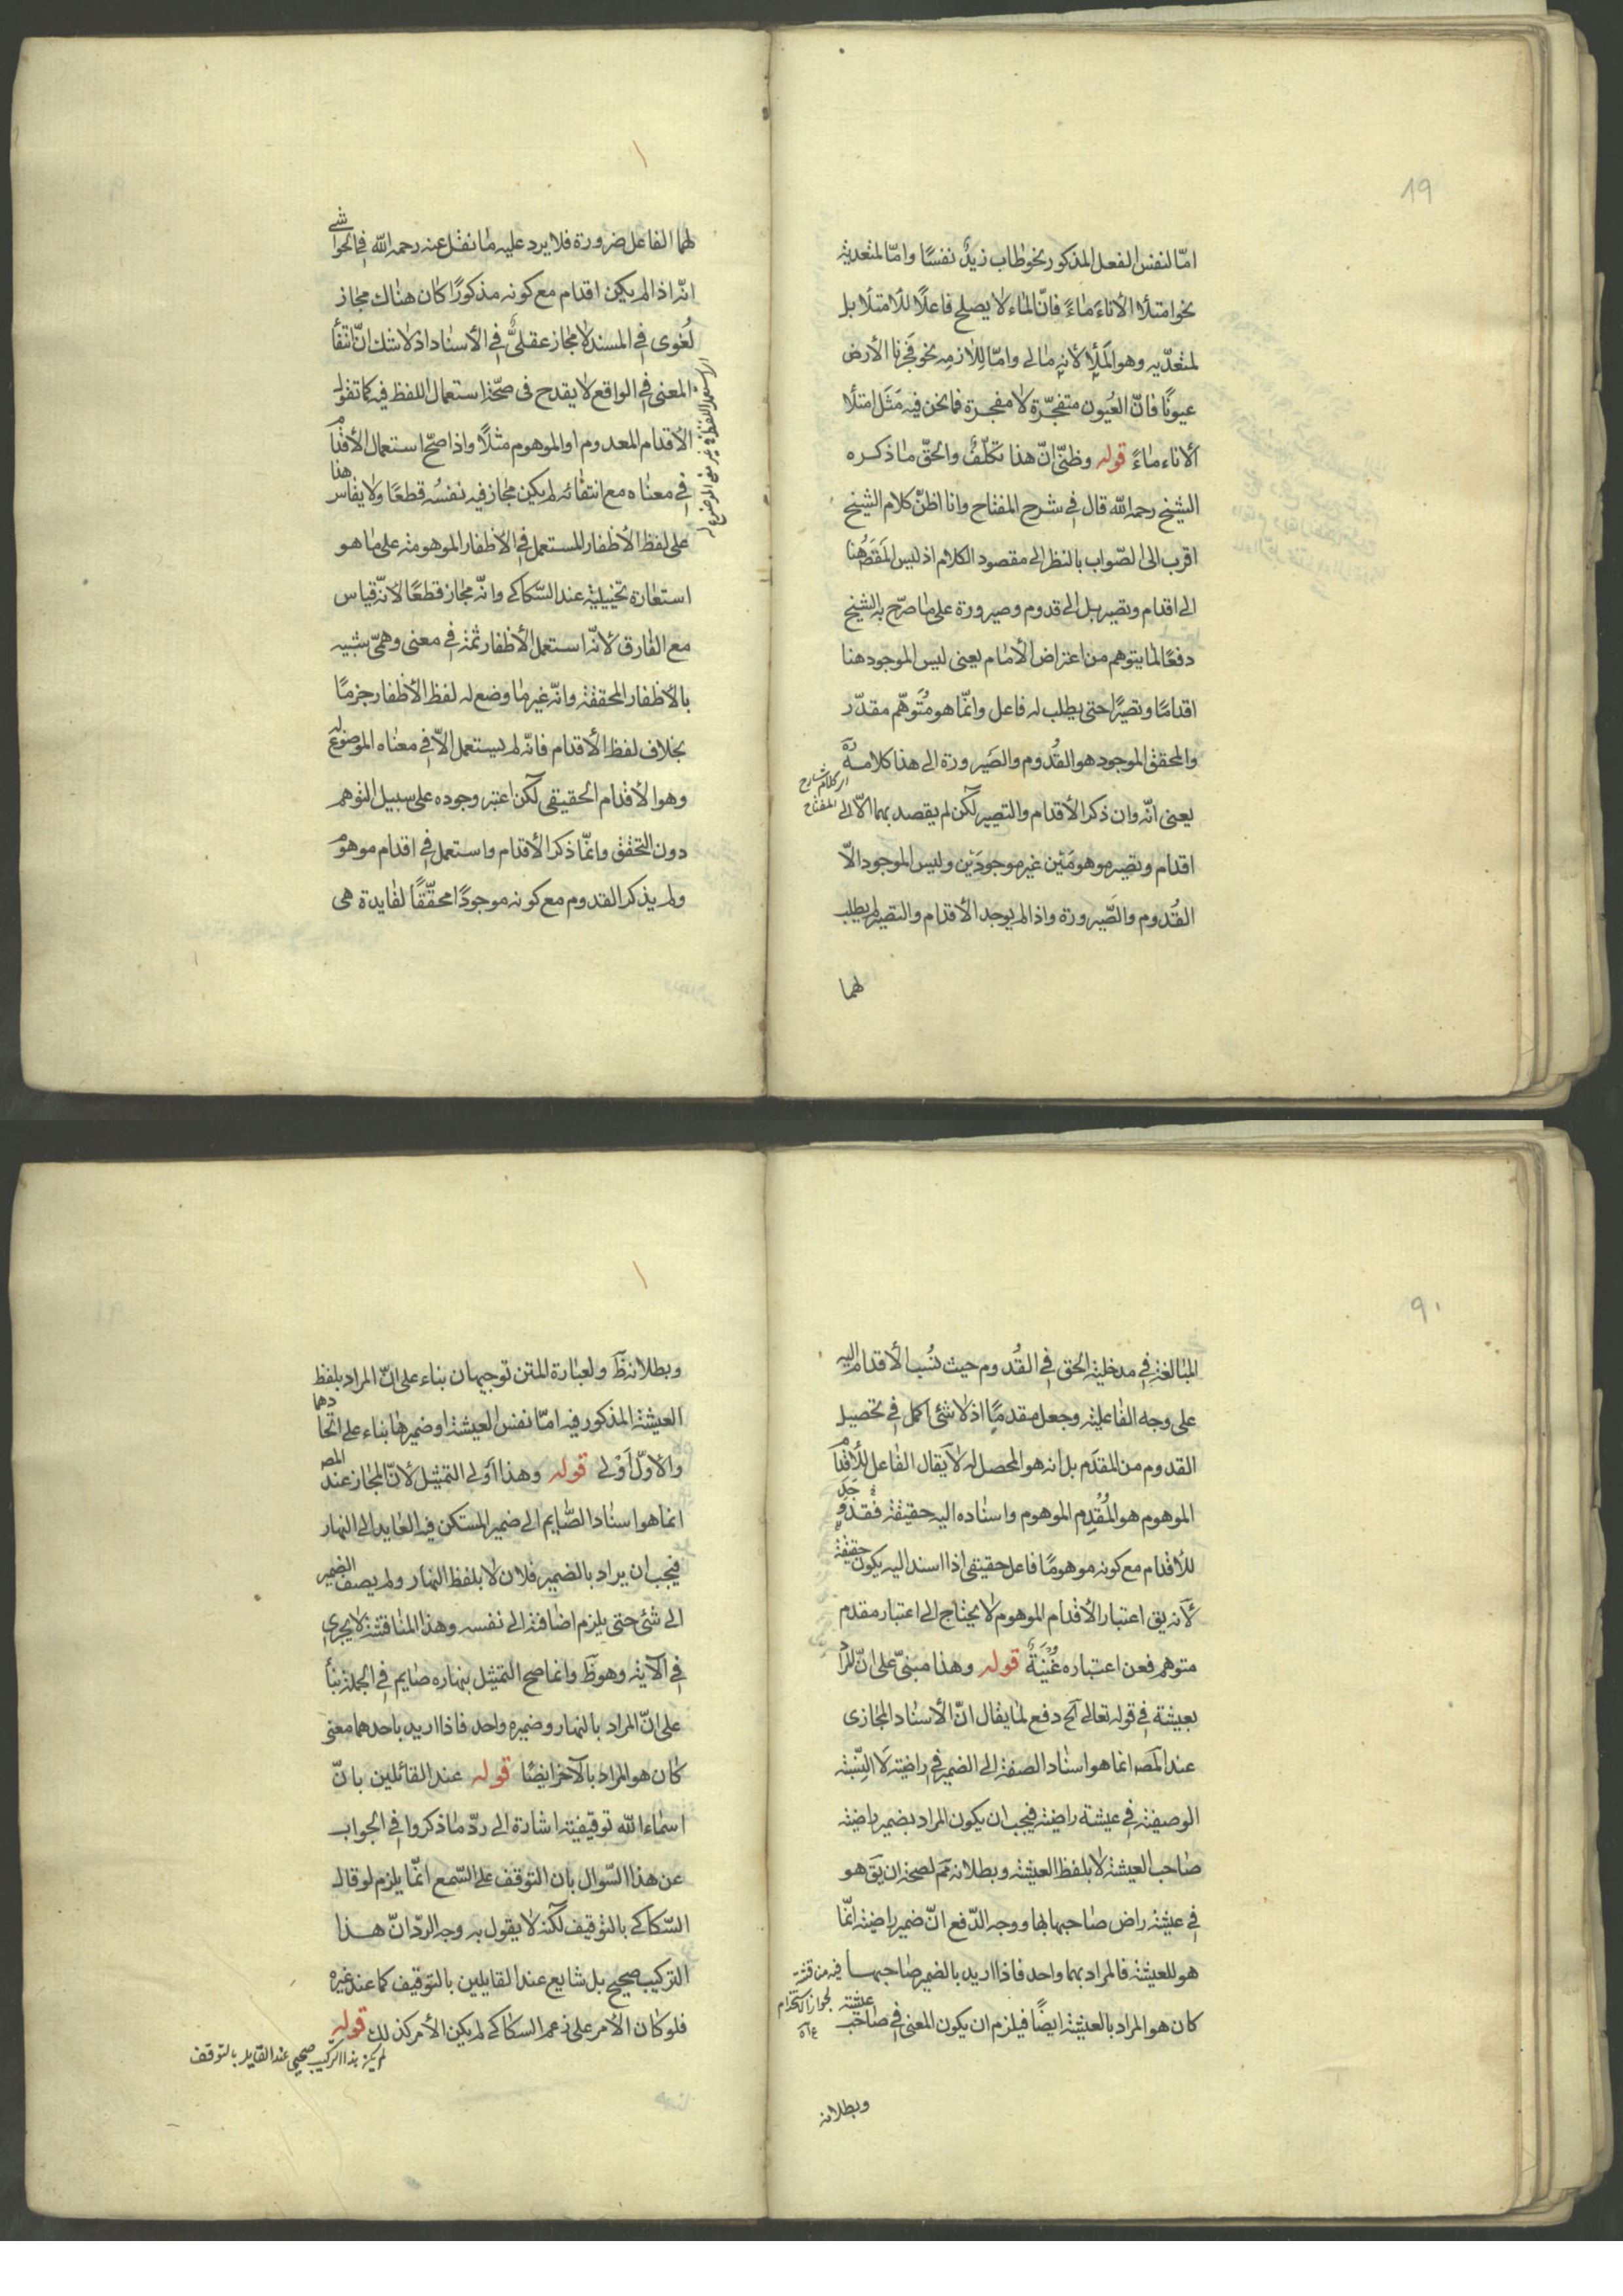 19
امّا لنفس الفعل المذكور نحو طاب زيدٌ نفسًا وامّا لمتعديه
نحو امتلأ الأناءَ ماءً فانّ الماء لا يصلح فاعلًا للأمتلاء بل
لمتعدّيه وهو الملأ لأنه مالى وامّا للازمه نحو فجّرنا الأرض
عيونًا فانّ العُيون متفجّرة لا مفجرة فما نحن فيه مَثَل امتلأ
ألاناء ماءً قوله وظنّى انّ هذا تكلّفٌ والحقّ ما ذكره
الشيخ رحمه الله قال فى شرح المفتاح وانا اظنّ كلام الشيخ
اقرب الى الصّواب بالنظر الى مقصود الكلام اذ ليس القصد هُنا
الى اقدام وتصيير بل الى قدوم وصيرورة على ما صرّح به الشيخ
دفعًا لما يتوهم من اعتراض الأمام يعنى ليس الموجود هنا
اقدامًا وتصييرًا حتى يطلب له فاعل وانّما هو مُتَوهّم مقدّر
والمحقق الموجود هو القُدوم والصَيرورة الى هذا كلامه
اى كلام شارح المفتاح
يعنى انّه وان ذكر الأقدام والتصيير لكن لم يقصد بهما الّا الى
اقدام وتصيير موهومَيْن غير موجودَيْن وليس الموجود الّا
القُدوم والصَّيرورة واذا لم يوجد الأقدام والتصيير لم يطلب
لهما
لهما الفاعل ضرورة فلا يرد عليه ما نقل عنه رحمه الله فى الحواشى
انّه اذا لم يكن اقدام مع كونه مذكورًا كان هناك مجاز
لُغوى فى المسند لا مجاز عقلىٌّ فى الأسناد اذ لا شك انّ انتفأ
المعنى فى الواقع لا يقدح فى صحّة استعمال اللفظ فيه كما تقول
الأقدام المعدوم او الموهوم مثلًا واذا صحّ استعمال الأقدام
فى معناه مع انتفائه لم يكن مجاز فيه نفسُه قطعًا ولا يقاس هنا
على لفظ الأظفار المستعمل فى الأظفار الموهومة على ما هو
استعارة تخييلية عند السّكاكى وانّه مجاز قطعًا لأنّه قياس
مع الفارق لأنّه استعمل الأظفار ثمّة فى معنى وهمىّ شبيه
بالأظفار المحققة وانّه غير ما وضع له لفظ الأظفار جزمًا
بخلاف لفظ الأقدام فانّه لم يستعمل الاّ فى معناه الموضوع له
وهو الأقدام الحقيقى لكن اعتبر وجوده على سبيل التوهم
دون التحقق وانّما ذكر الأقدام واستعمل فى اقدام موهوم
ولم يذكر القدوم مع كونه موجودًا محقّقًا لفايدة هى
٩٠
المبالغة فى مدخلية الحق فى القُدوم حيث نُسب الأقدام اليه
على وجه الفاعلية وجعل مقدمًا اذ لا شئ اكمل فى تحصيل
القدوم من المقدَم بل انه هو المحصل له لا يقال الفاعل للأقدام
الموهوم هو المُقْدِم الموهوم واسناده اليه حقيقة فقد وجد
للأقدام مع كونه موهومًا فاعل حقيقى اذا اسند اليه يكون حقيقة
لأنه يق اعتبار الأقدام الموهوم لا يحتاج الى اعتبار مقدم
متوهم فعن اعتباره غُنْيَةٌ قوله وهذا مبنىّ على انّ المراد
بعيشة فى قوله تعالى آلخ دفع لما يقال انّ الأسناد المجازى
عند المصـ انما هو اسناد الصفة الى الضمير فى راضية لا النّسبة
الوصفية فى عيشة راضية فيجب ان يكون المراد بضمير راضية
صاحب العيشة لا بلفظ العيشة وبطلانه مم لصحة ان يق هو
فى عيشة راض صاحبها بها ووجه الدّفع انّ ضمير راضية انّما
هو للعيشة فالمراد بهما واحد فاذا اريد بالضمير صاحبها
كان هو المراد بالعيشة ايضًا فيلزم ان يكون المعنى فى صاحب عيشة
وبطلانه
وبطلانه ظ ولعبارة المتن توجيهان بناء على انّ المراد بلفظ
العيشة المذكور فيه امّا نفس العيشة او ضميرها بناء على اتحادهما
والأوّل أوْلى قوله وهذا أولى التمثيل لأنّ المجاز عند المصـ
انما هو اسناد الصّايم الى ضمير المستكن فيه العايد الى النهار
فيجب ان يراد بالضمير فلان لا بلفظ النهار ولم يضف الضمير
الى شئ حتى يلزم اضافة الى نفسه وهذا المناقشة لا يجرى
فى الآية وهو ظ وانما صح التمثيل بنهاره صايم فى الجملة بنأ
على انّ المراد بالنهار وضميره واحد فاذا اريد باحدهما معنى
كان هو المراد بالآخر ايضًا قوله عند القائلين بانّ
اسماء الله توقيفية اشارة الى ردّ ما ذكروا فى الجواب
عن هذا السّوال بان التوقف على السّمع انّما يلزم لو قال
السّكاكى بالتوقيف لكنه لا يقول به وجه الردّ انّ هذا
التركيب صحيح بل شايع عند القايلين بالتوقيف كما عند غيره
فلو كان الأمر على زعم السكاكى لم يكن الأمر كذلك قوله
لم يكن هذا التركيب صحيحى عند القايل بالتوقف